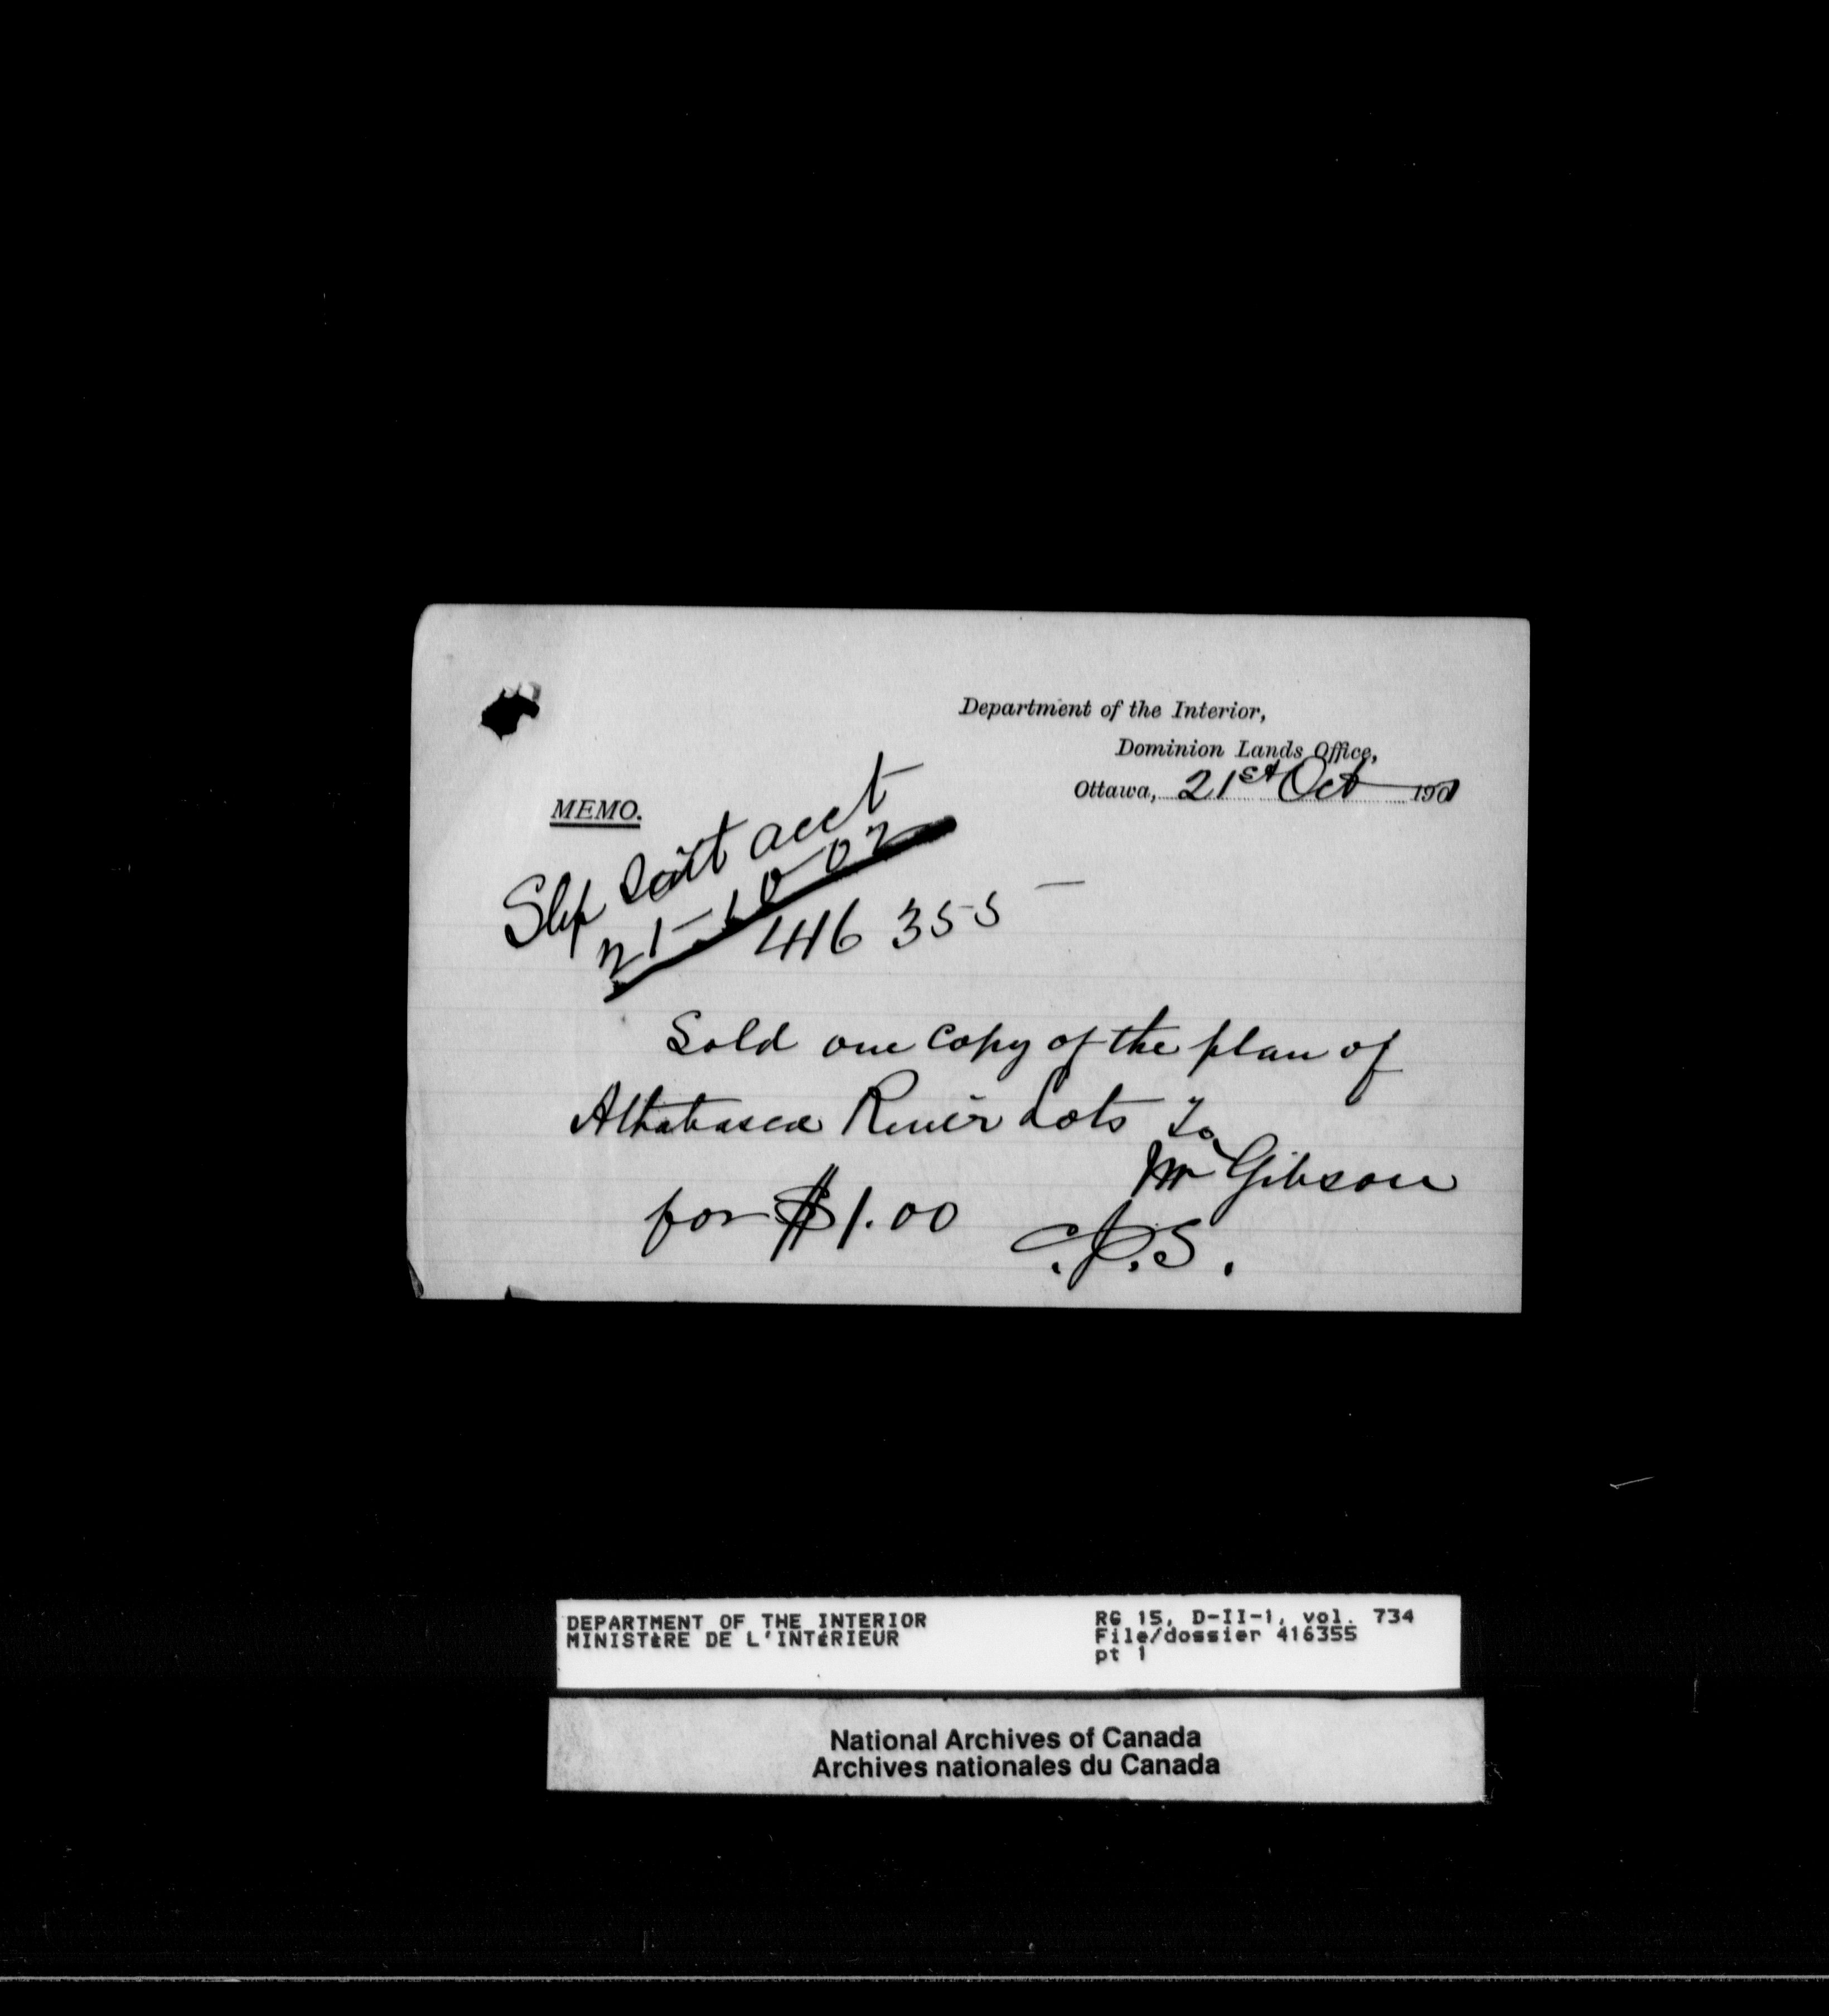 Department of the Interior,
Dominion Lands Office,
Ottawa, 21st Oct 190
MEMO.
Slip acct
21-10-02
416 355
Sold one copy of the plan of
Athabasca River Lots To
Mr Gibson
for $1.00
DEPARTMENT OF THE INTERIOR
MINISTÈRE DE L'INTÉRIEUR
RG 15, D-II-1, vol. 734
File/dossier 416355
pt 1
National Archives of Canada
Archives nationales du Canada